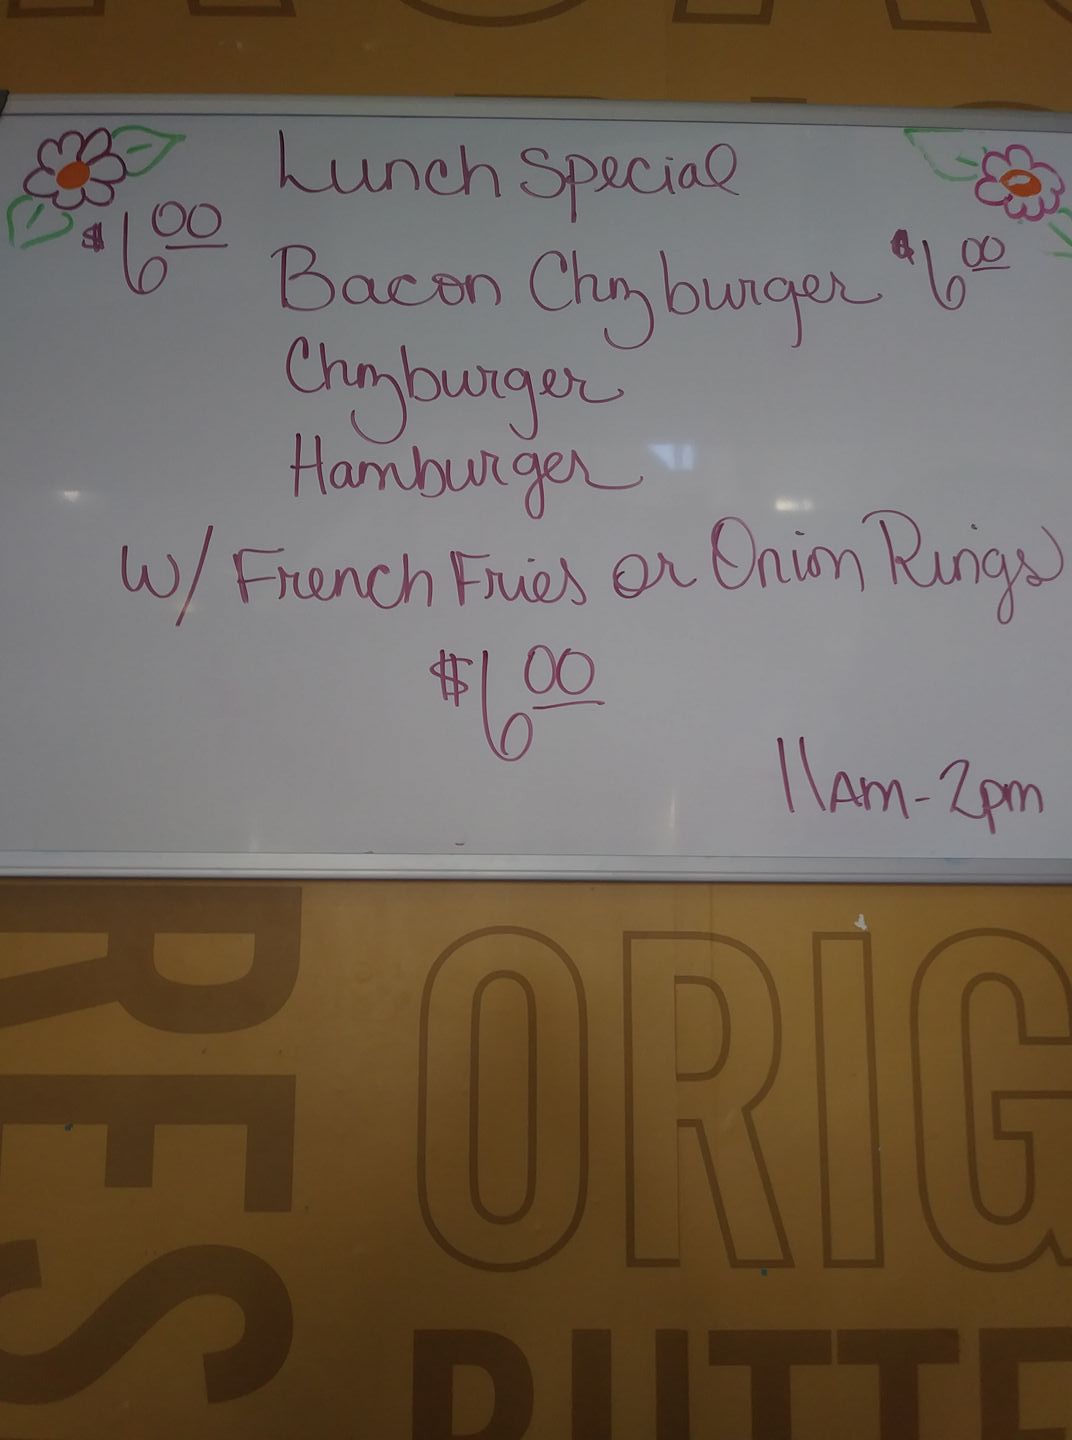 Lunch Special
$6.00 Bacon Chzburger $6.00
Chzburger
Hamburger
W/ French Fries or Onion Rings
$6.00
11Am-2pm
RES
ORIG
BUTTE